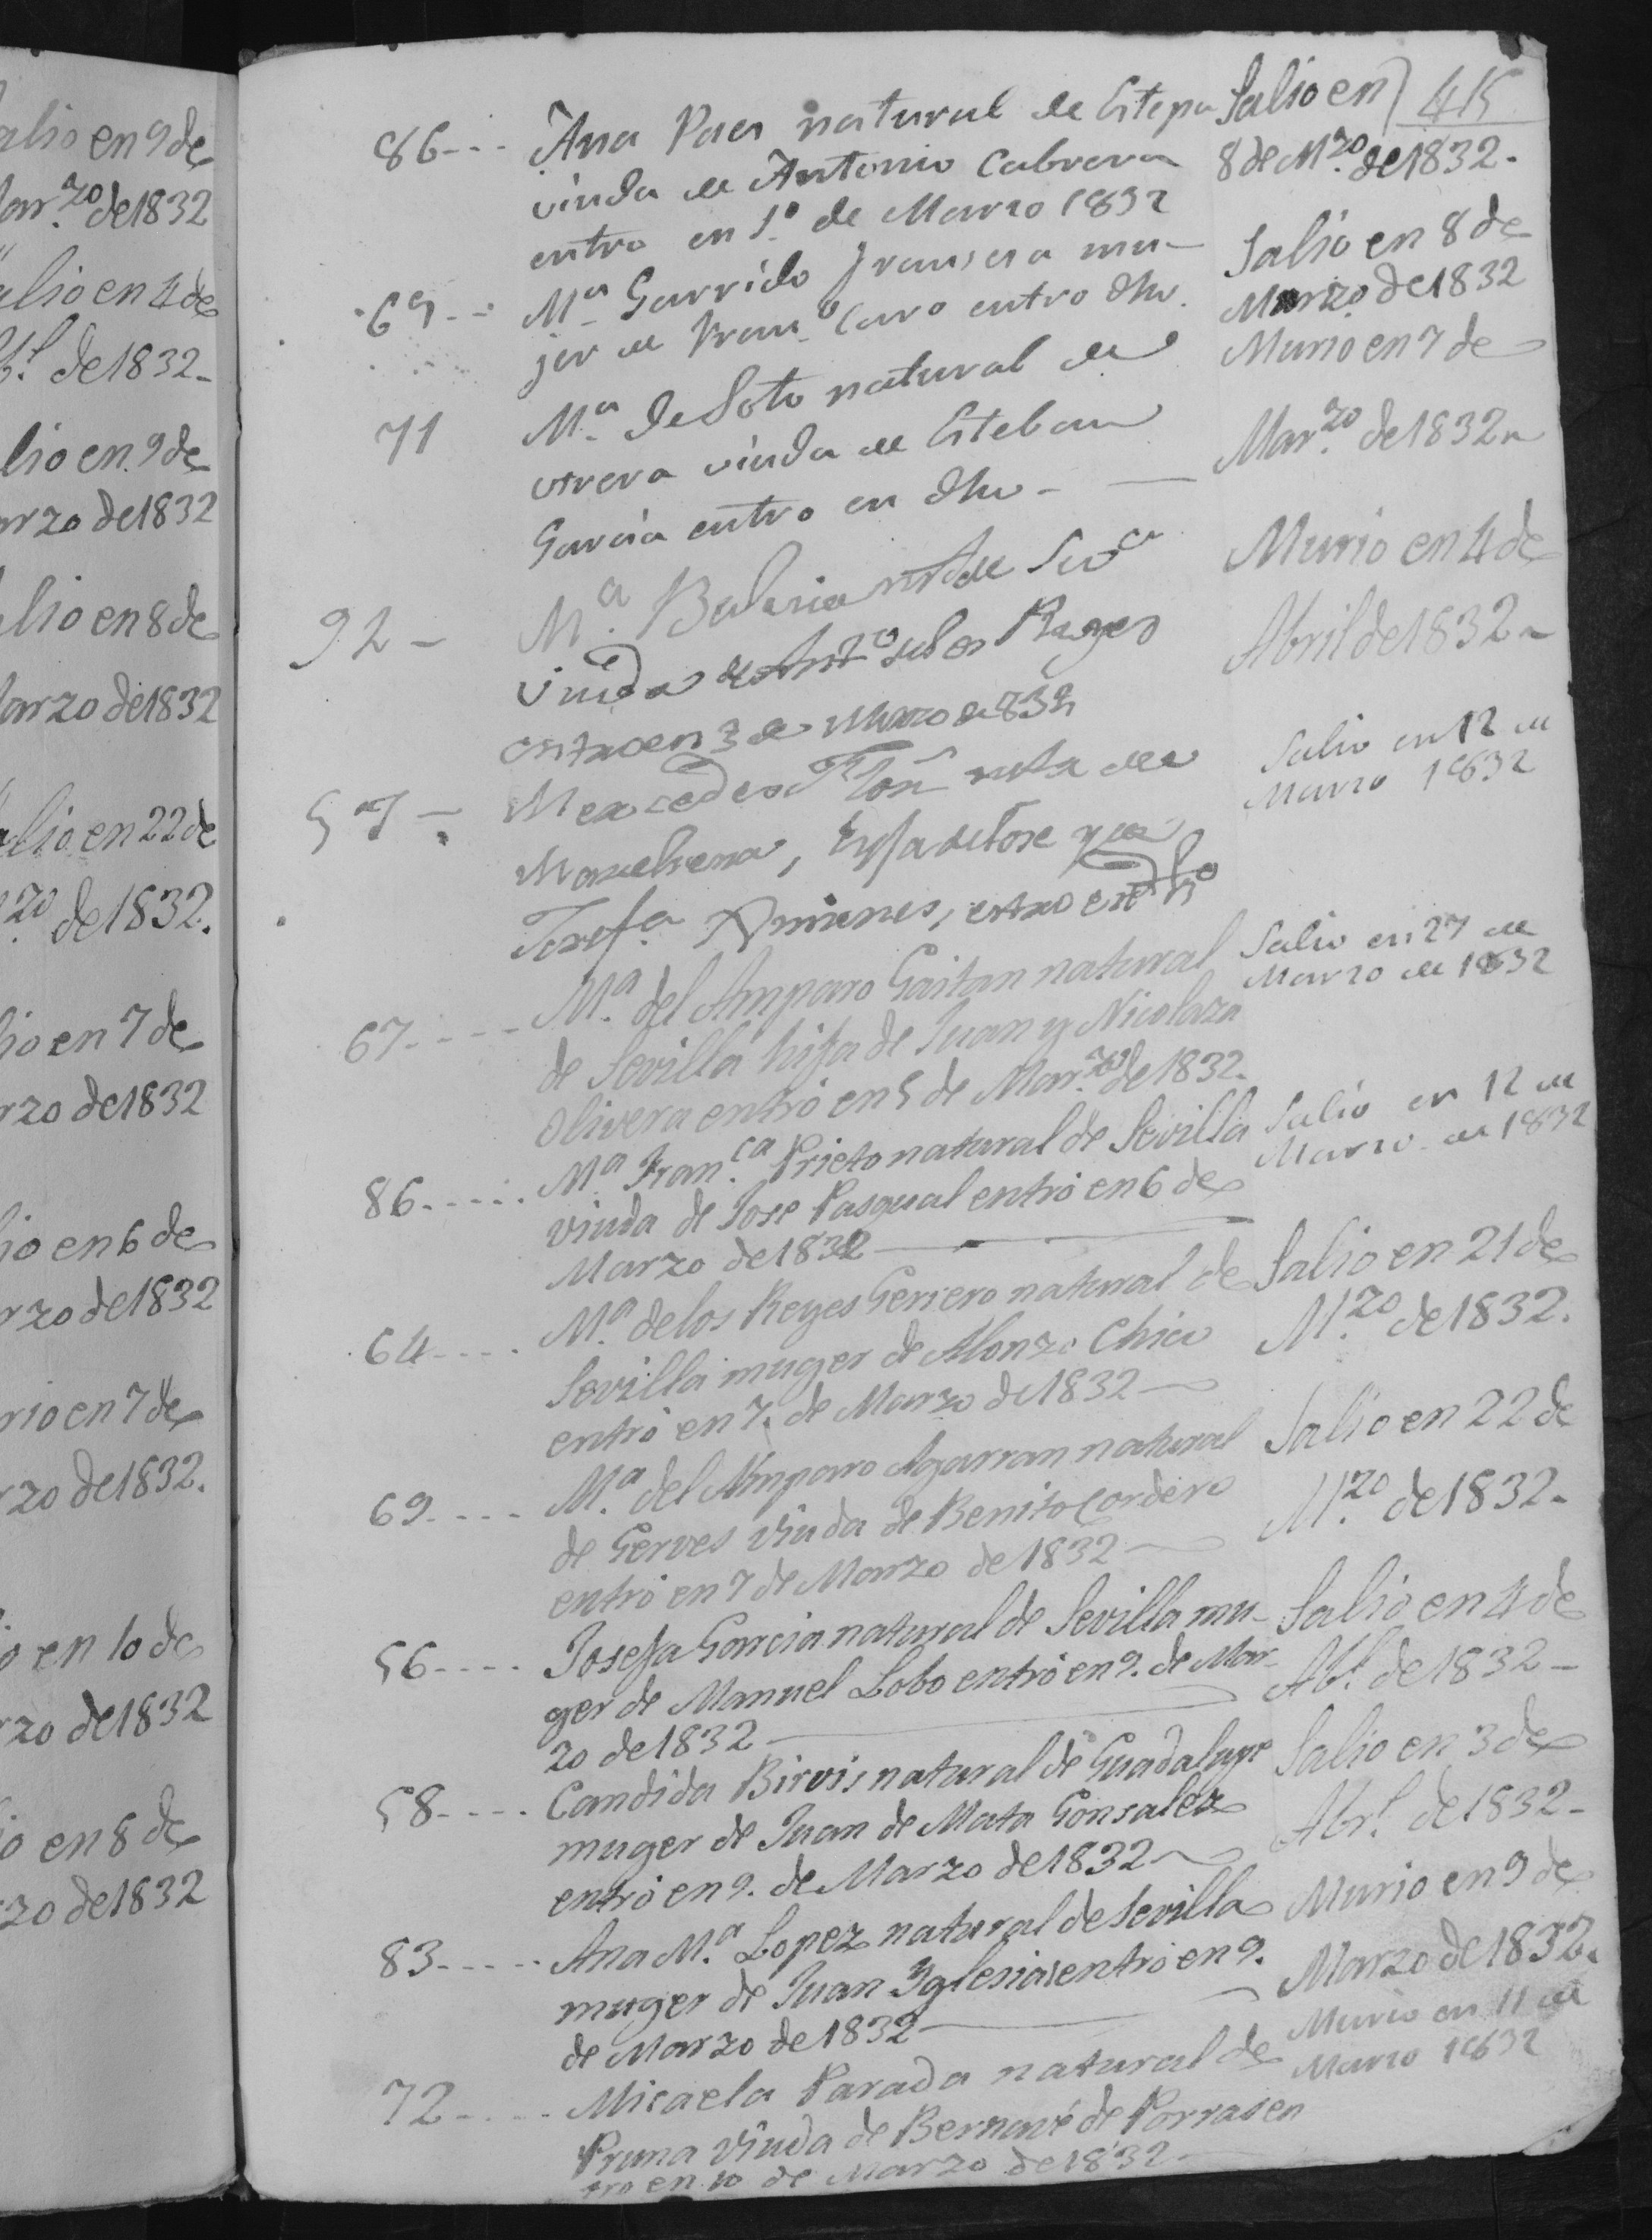 alio en 9 de
arzo de 1832
alio en 4 de
bl. de 1832-
lio en 9 de
rzo de 1832
lio en 8 de
arzo de 1832
alio en 22 de
zo de 1832.
io en 7 de
rzo de 1832
io en 6 de
rzo de 1832
rio en 7 de
rzo de 1832.
o en 10 de
rzo de 1832
o en 8 de
rzo de 1832
415
86--- Ana Paes natural de Estepa
viuda de Antonio Cabrera
entro en 1º de Marzo 1832
Salio en
8 de Mzo. de 1832-
69-- Mª Garrido francesa mu-
jer de Franº Caro entro dho.
Salio en 8 de
Marzo de 1832
71 Mª de Soto natural de
utrera viuda de Esteban
Garcia entro en dho-
Murio en 7 de
Marzo. de 1832
92- Mª. Baleria nl. de Sevª
viuda de Antº de los Reyes
entro en 3 de Marzo de 832
Murio en 4 de
Abril de 1832
57- Mercedes nata de
Marchena, Hija de Jose y de
Josefª Ximenes, entro en dho
Salio en 12 de
Marzo 1832
67---- Mª. del Amparo Gaitan natural
de Sevilla hija de Juan y Nicolaza
Olivera entró en 5 de Marzo. de 1832.
Salio en 27 de
Marzo de 1832
86---- Mª Franca. Prieto natural de Sevilla
viuda de Jose Pasqual entró en 6 de
Marzo de 1832
Salio en 12 de
Marzo de 1832
64---- Mª. de los Reyes Gerrero natural de
Sevilla muger de Alonzo Chica
entró en 7. de Marzo de 1832
Salio en 21 de
Mzo. de 1832.
69---- Mª. del Amparo Agarran natural
de Gerves viuda de Benito Cordero
entró en 7 de Marzo de 1832
Salio en 22 de
Mzo. de 1832-
56---- Josefa Garcia natural de Sevilla mu-
ger de Manuel Lobo entró en 9. de Mar-
zo de 1832
Salio en 4 de
Abl. de 1832-
58---- Candida Birvis natural de Guadalupe
muger de Juan de Mata Gonsalez
entró en 9. de Marzo de 1832
Salio en 3 de
Abrl. de 1832-
83----- Ana Mª. Lopez natural de Sevilla
muger de Juan Yglesias entró en 9.
de Marzo de 1832
Murio en 9 de
Marzo de 1832.
72---- Micaela Parada natural de
Pruna viuda de Bernavé de Porras en
tro en 10 de Marzo de 1832-
Murio en 11 de
Marzo 1832